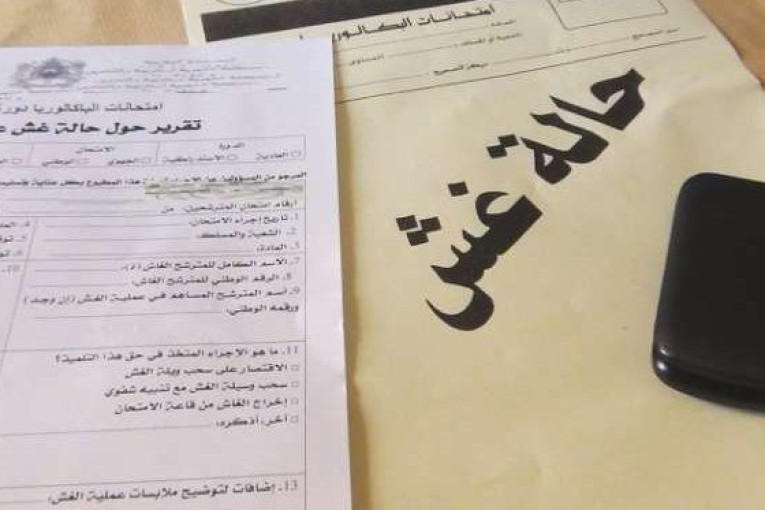 امتحانات البكالوريـا
المادة:
الشعبة أو المسلك:
المستوى:
مركز التصحيح:
حالة غش
امتحانات الباكالوريا دورة
تقرير حول حالة غش
الدورة
الامتحان
□ العادية □ الاستدراكية □ الجهوي □ الوطني
المرجو من المسؤولين هذا المطبوع بكل عناية
أرقام امتحان المترشحين: من
1. تاريخ إجراء الامتحان:
2. الشعبة والمسلك:
3. المادة:
7. الاسم الكامل للمترشح الغاش (ة):
8. الرقم الوطني للمترشح الغاش:
9. اسم المترشح المساهم في عملية الغش (إن وجد)
ورقمه الوطني:
10.
11. ما هو الإجراء المتخذ في حق هذا التلميذ؟
□ الاقتصار على سحب وسيلة الغش
□ سحب وسيلة الغش مع تنبيه شفوي
□ إخراج الغاش من قاعة الامتحان
□ آخر، أذكره:
13. إضافات لتوضيح ملابسات عملية الغش: